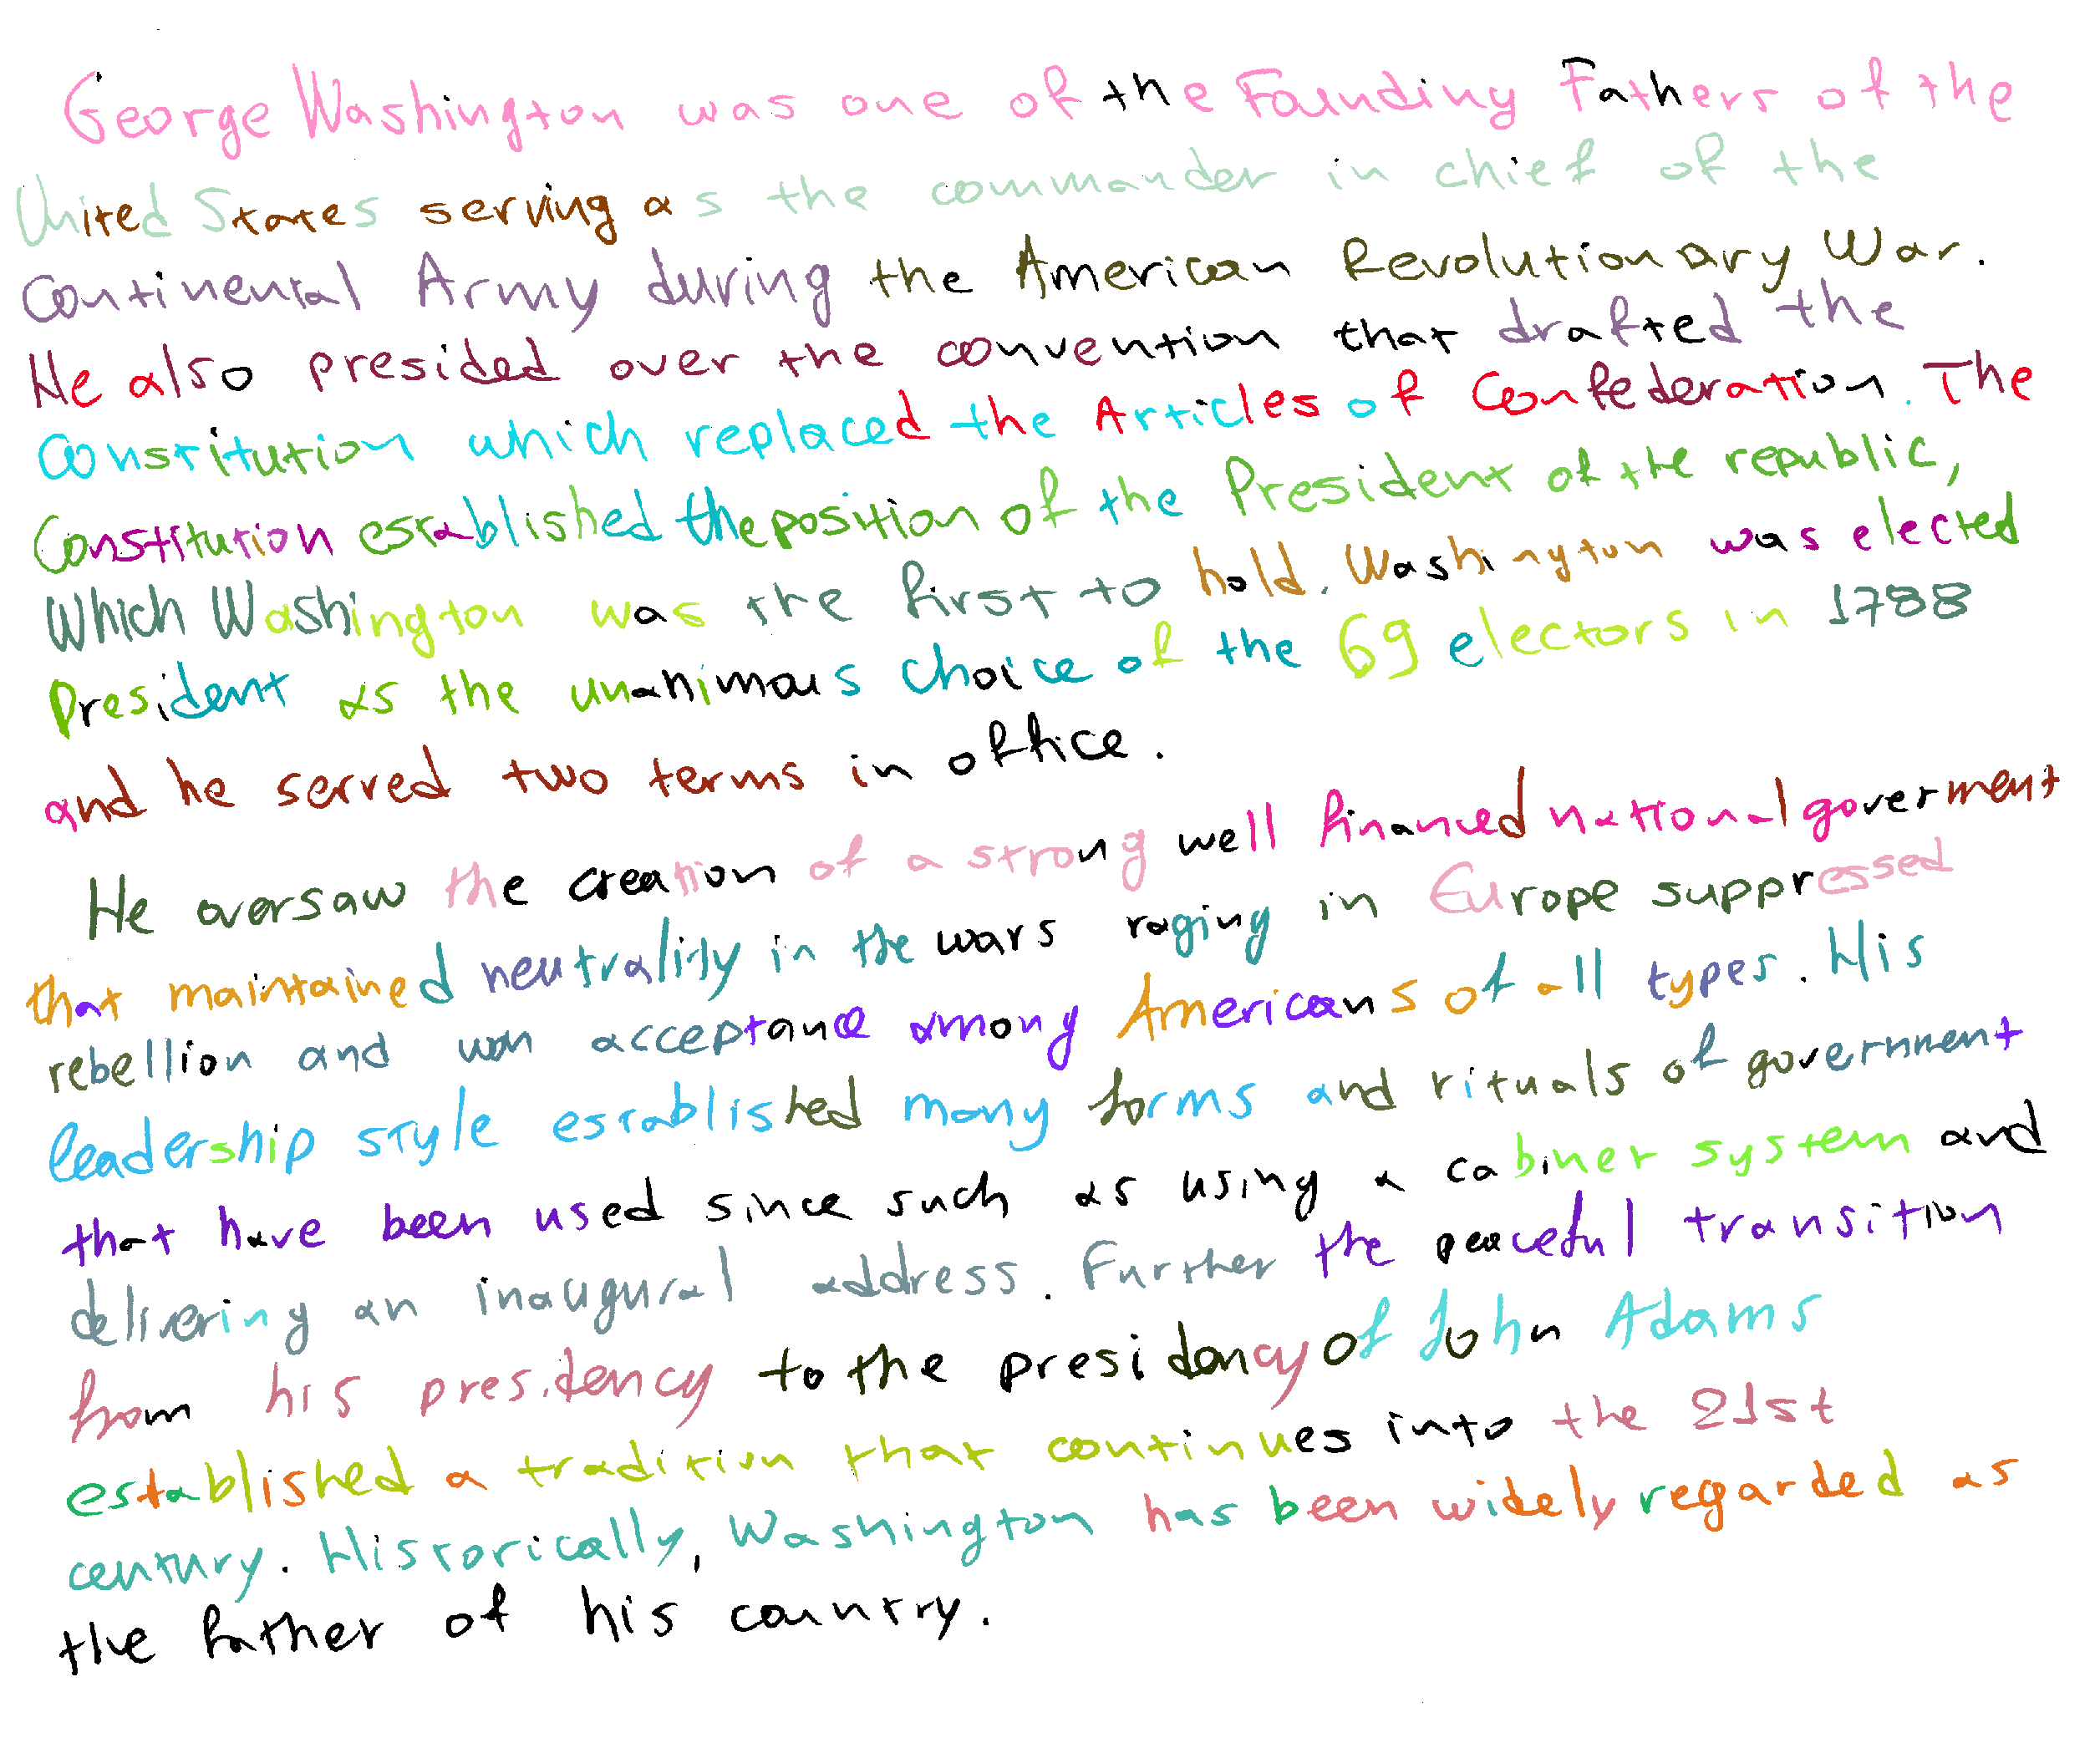 George Washington was one of the Founding Fathers of the
United States serving as the commander in chief of the
Continental Army during the American Revolutionary War.
He also presided over the convention that drafted the
Constitution which replaced the Articles of Confederation. The
Constitution established the position of the President of the republic,
Which Washington was the first to hold. Washington was elected
President as the unanimous choice of the 69 electors in 1788
and he served two terms in office.
He oversaw the creation of a strong well financed national goverment
that maintained neutrality in the wars raging in Europe suppressed
rebellion and won acceptance among Americans of all types. His
leadership style established many forms and rituals of government
that have been used since such as using a cabinet system and
delivering an inaugural address. Further the peaceful transition
from his presidency to the presidency of John Adams
established a tradition that continues into the 21st
century. Historically, Washington has been widely regarded as
the father of his country.